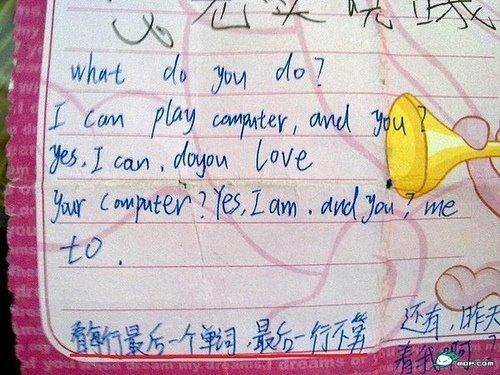 what do you do?
I can play computer, and you?
yes, I can. doyou love
your computer? Yes, I am. and you? me
to.
看每行最后一个单词,最后一行不算
还有,昨天
看我
MOP.com